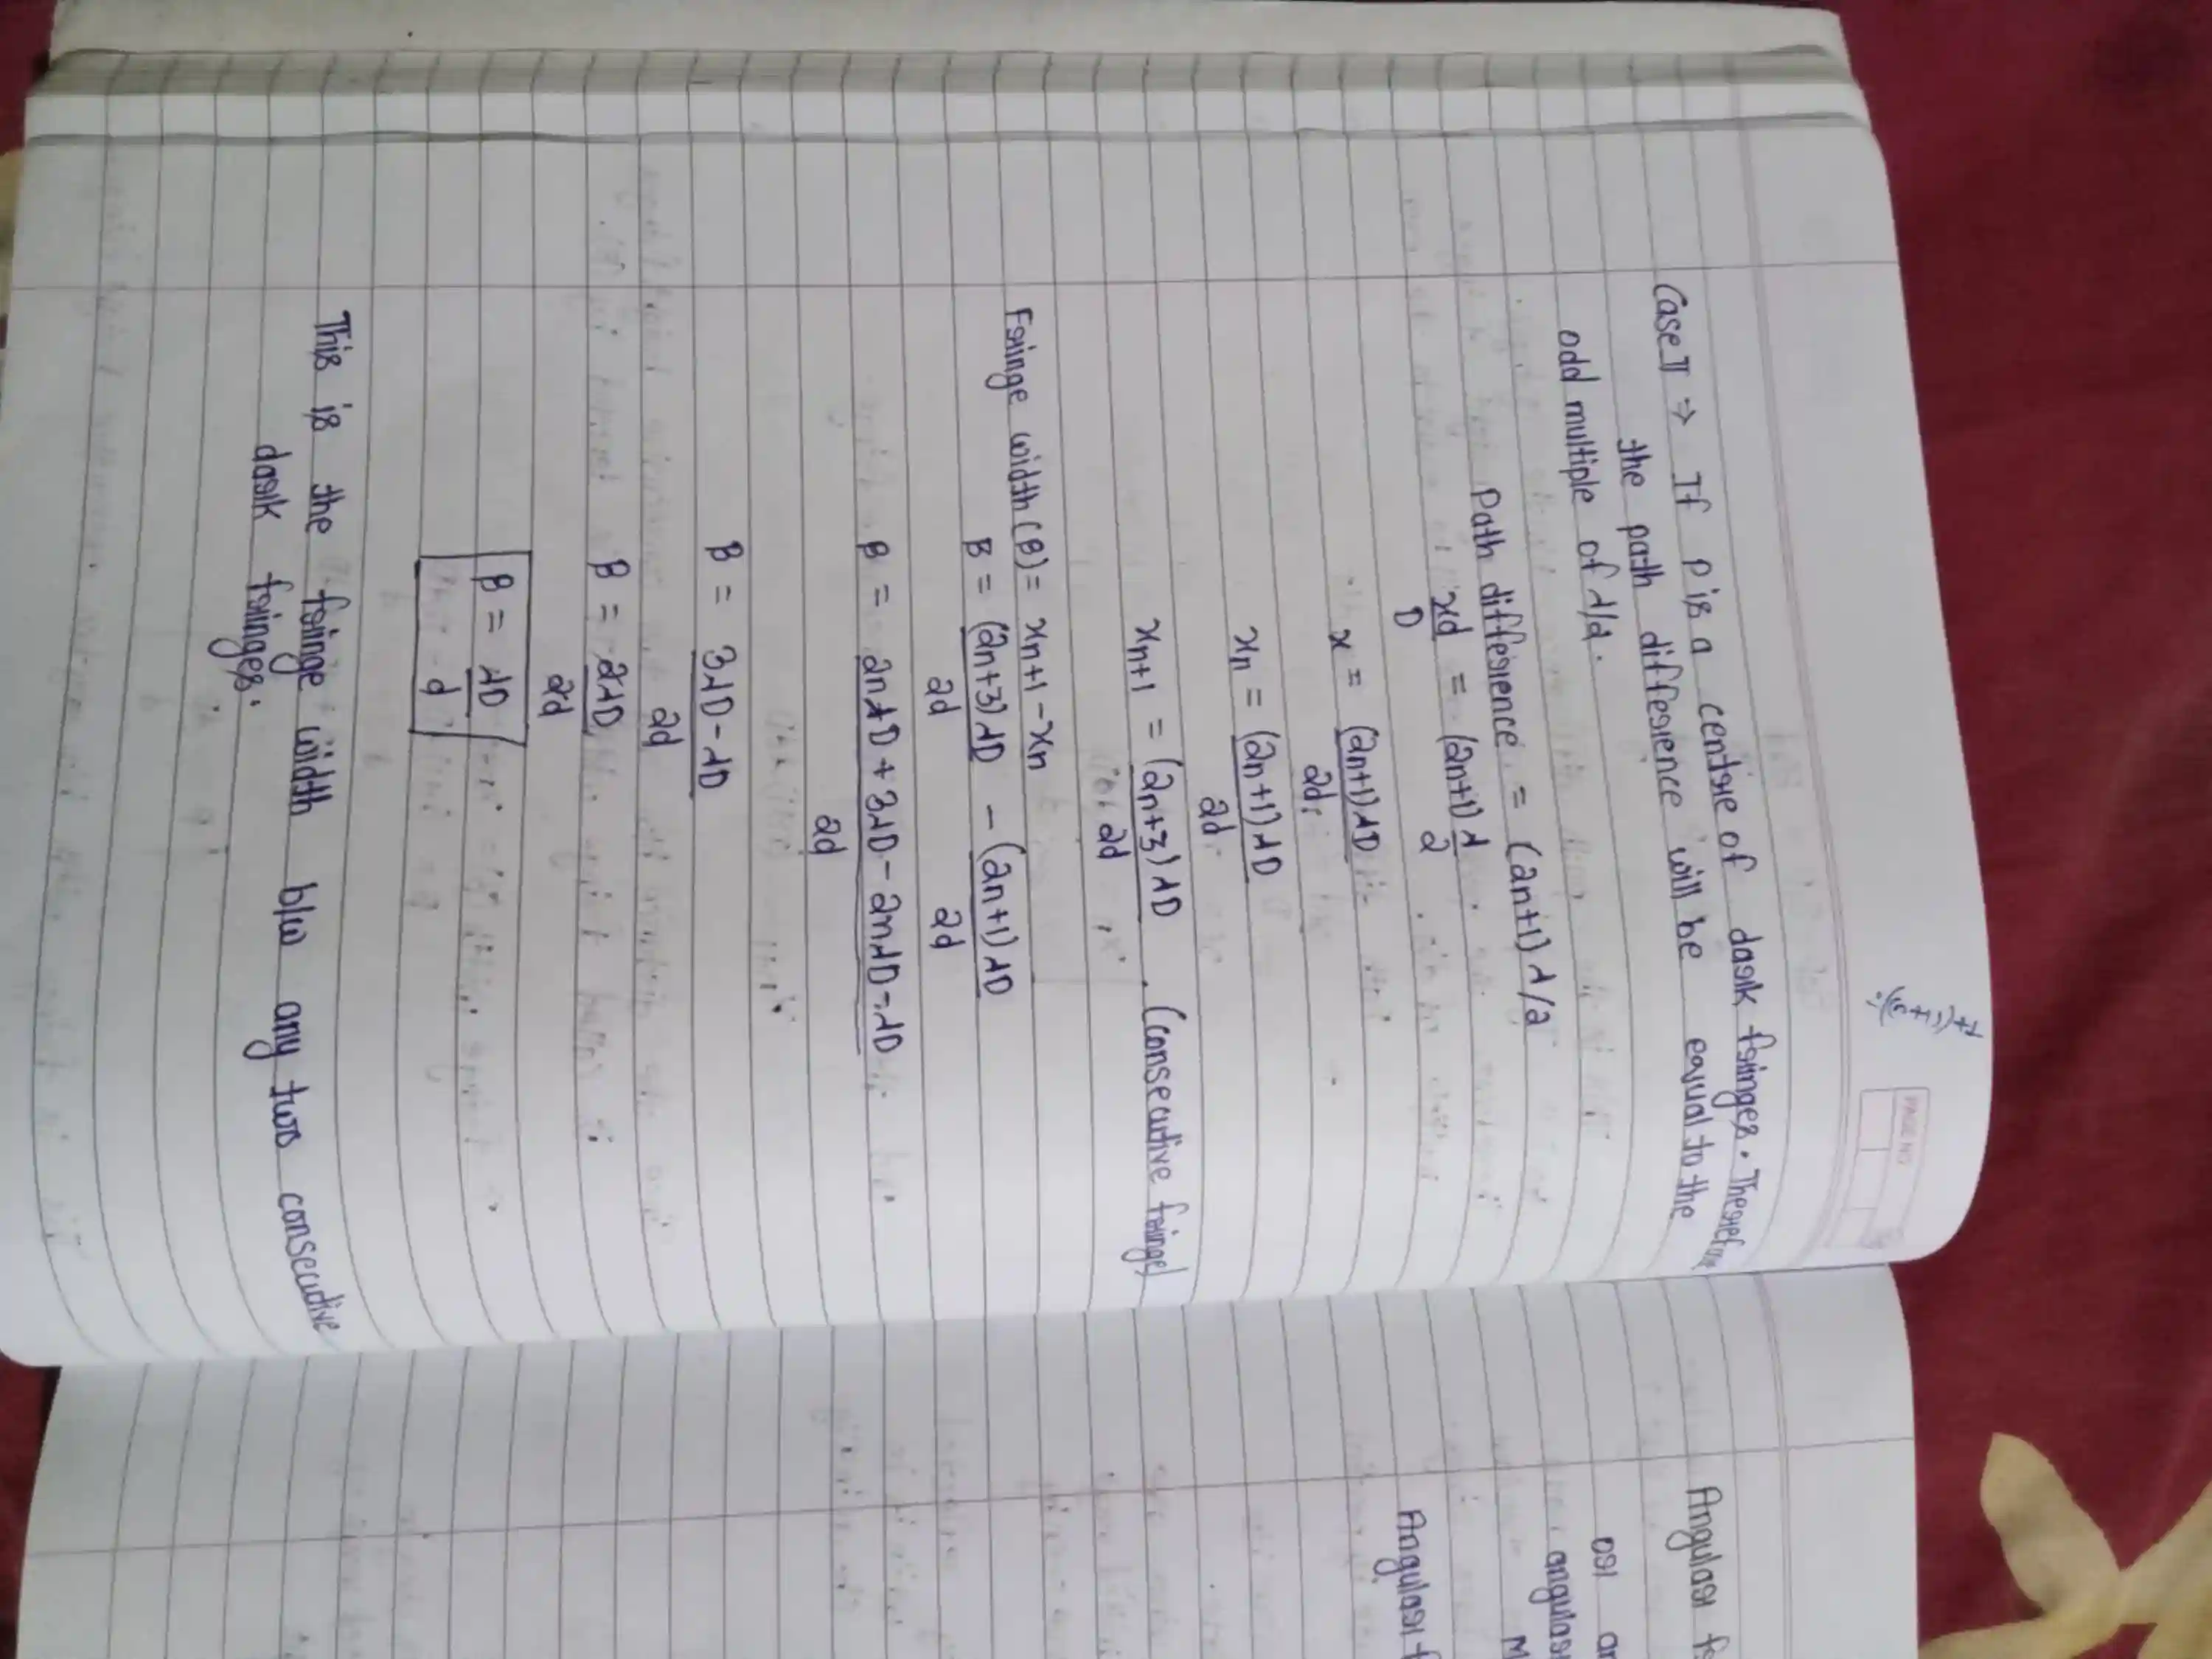 PAGE NO
Case II ⇒ If P is a centre of dark fringes. Therefore
the path difference will be equal to the
odd multiple of λ/2.
Path difference = (2n+1) λ/2
xd/D = (2n+1) λ/2
x = (2n+1)λD/2d
xn = (2n+1)λD/2d
xn+1 = (2n+3)λD/2d (consecutive fringe)
Fringe width (β) = xn+1 - xn
β = (2n+3)λD/2d - (2n+1)λD/2d
β = 2nλD + 3λD - 2nλD - λD/2d
β = 3λD - λD/2d
β = 2λD/2d
β = λD/d
This is the fringe width b/w any two consecutive
dark fringes.
Angular
or
angular
Angular